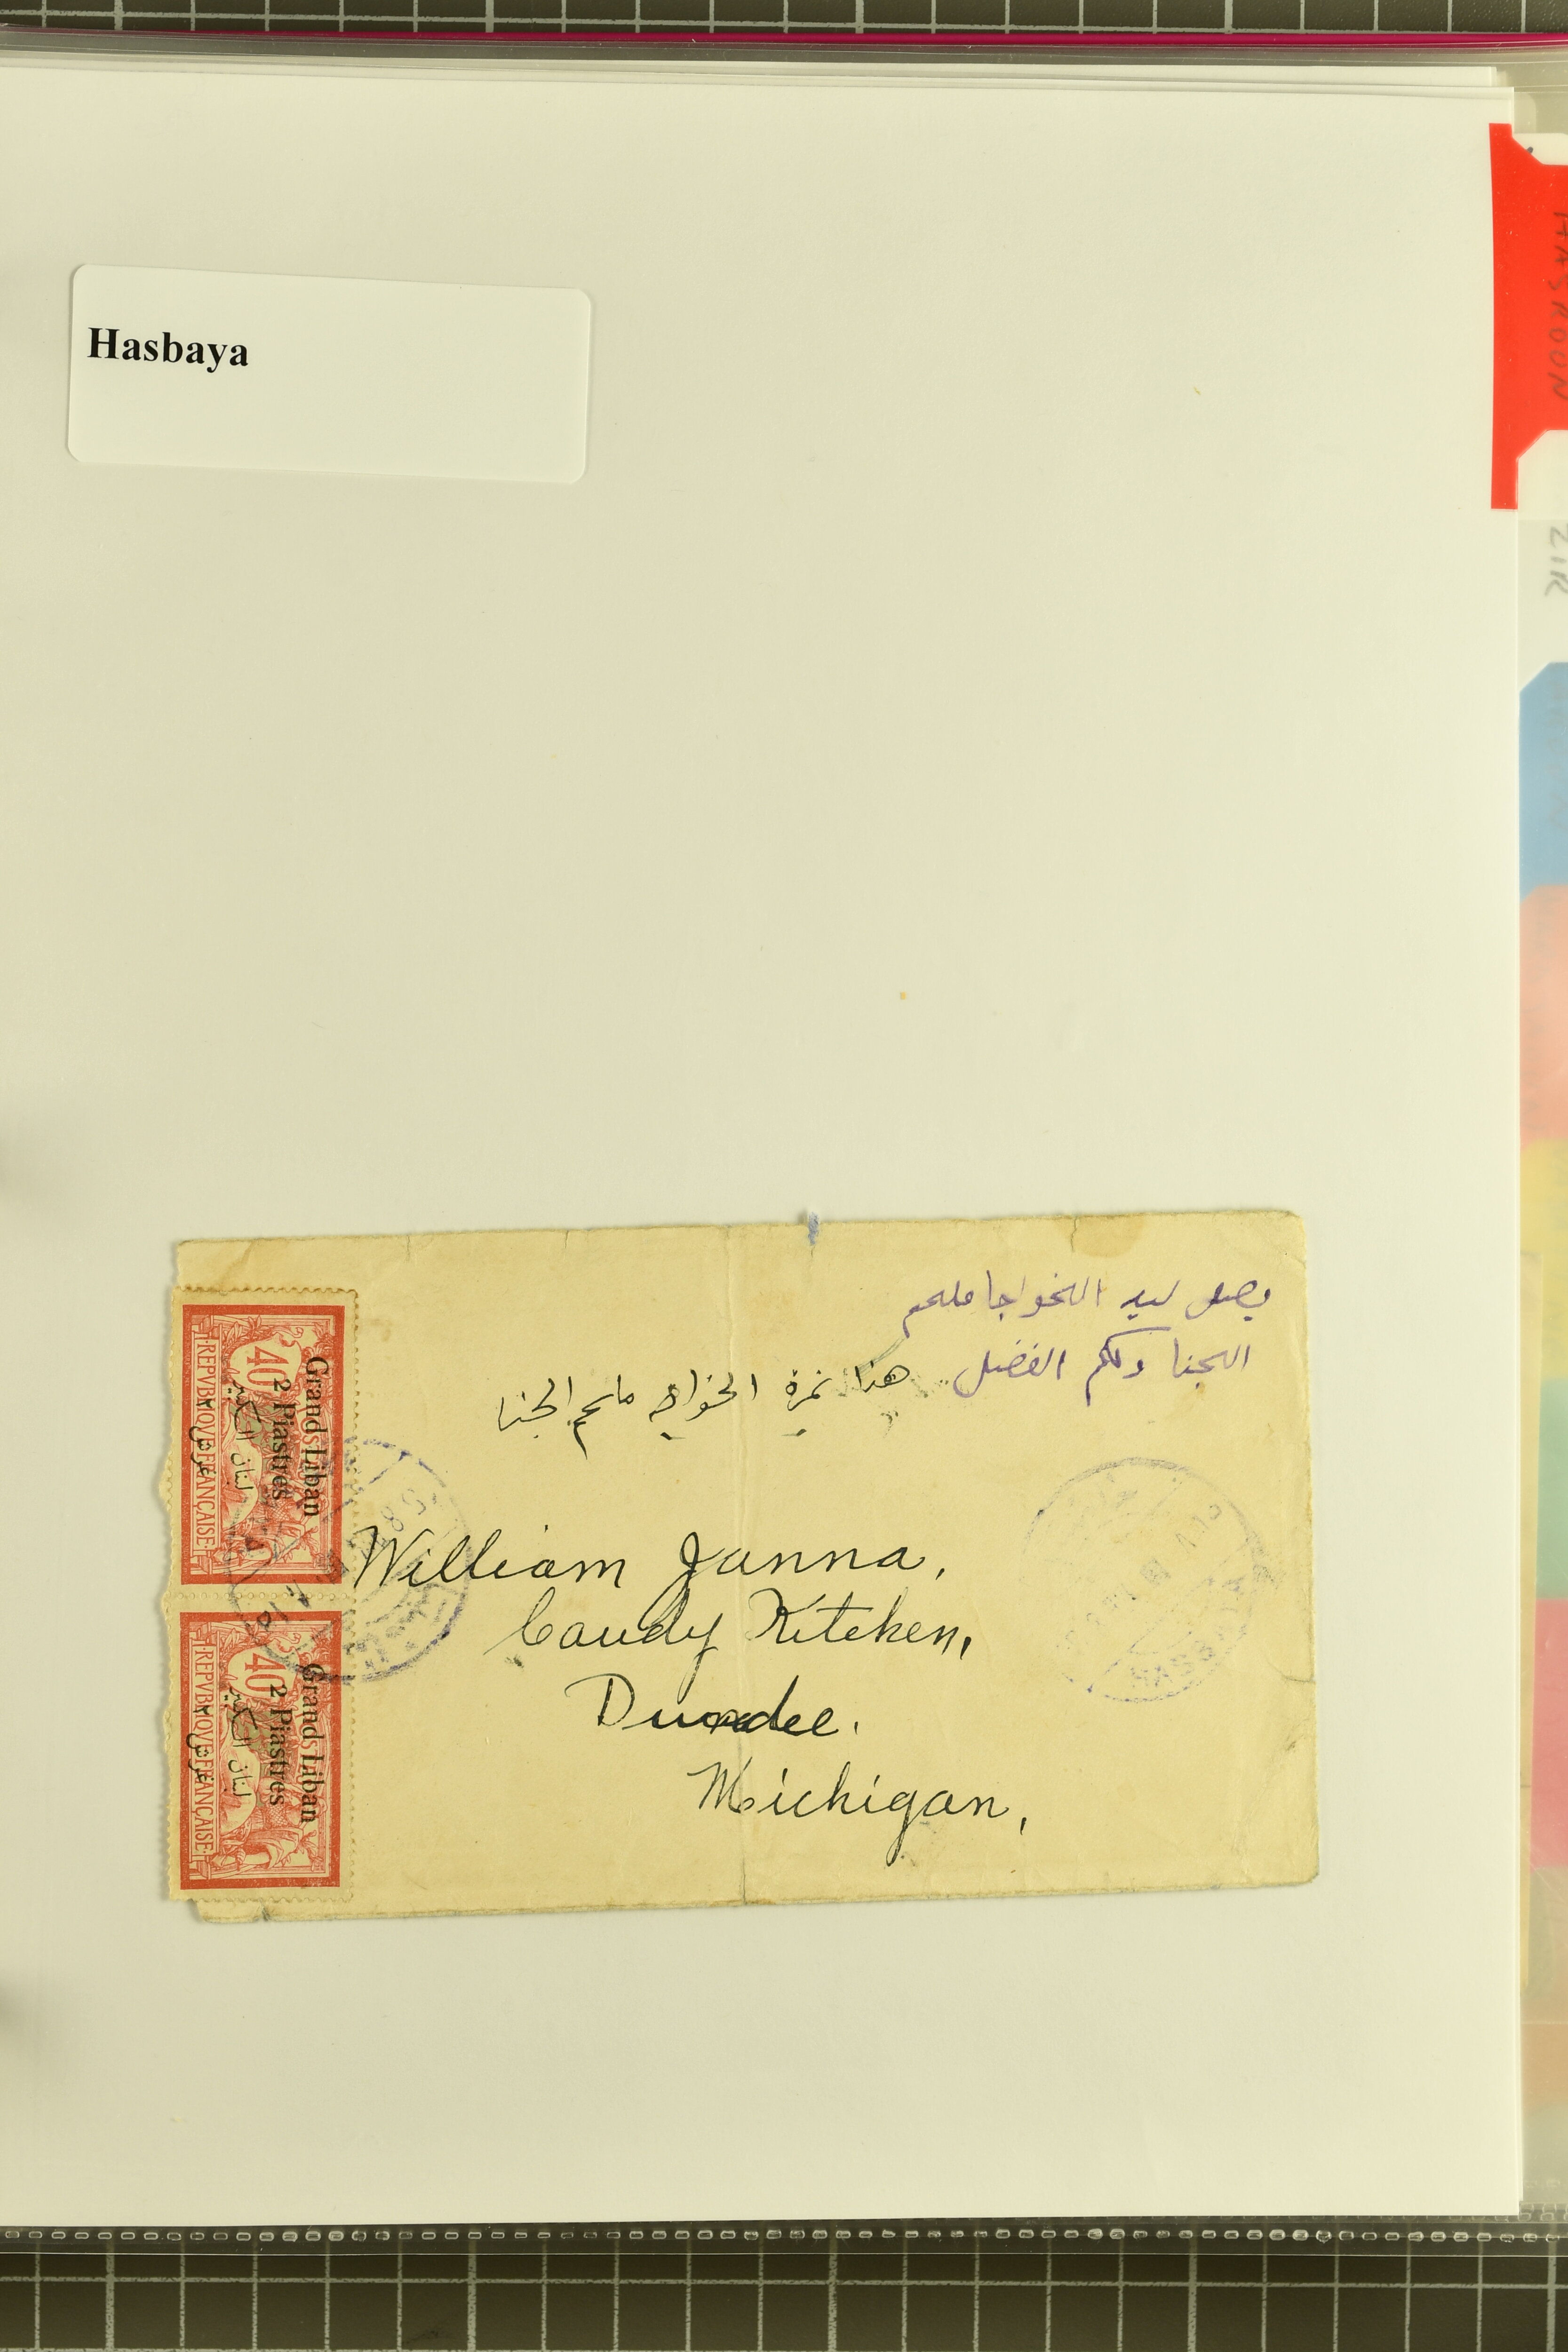 HASROON
ZIR
Hasbaya
يصل ليد الخواجا ملحم
الجنا ولكم الفضل
هنا نمرة الخواجه ملحم الجنا
William Janna,
Candy Kitchen,
Dundee.
Michigan,
Grand Liban
2 Piastres
لبنان الكبير
غرش ٢
40
REPVBLIQVE FRANÇAISE
Grand Liban
2 Piastres
لبنان الكبير
غرش ٢
40
REPVBLIQVE FRANÇAISE
HASBAYA